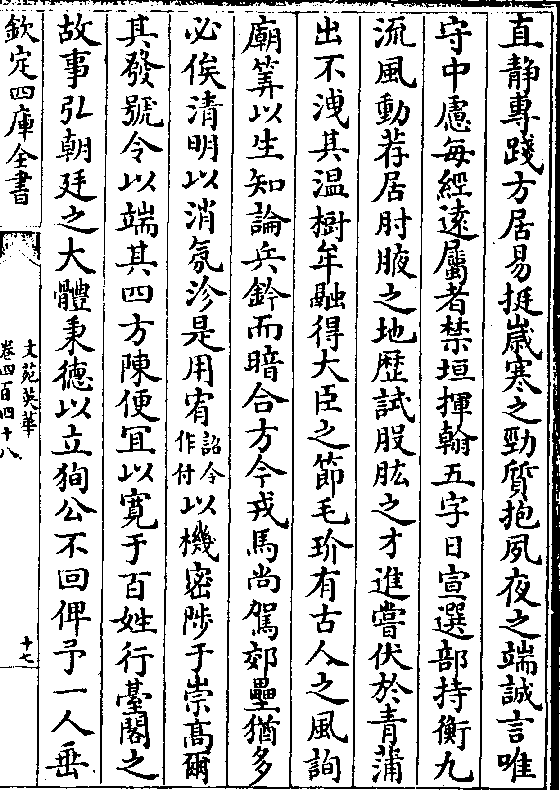 直静專踐方居易挺嵗寒之勁質抱夙夜之端誠言唯
守中慮每經遠屬者禁垣揮翰五字日宣選部持衡九
流風動荐居肘腋之地歴試股肱之才進嘗伏於青蒲
出不洩其温樹牟融得大臣之節毛玠有古人之風詢
廟筭以生知論兵鈐而暗合方今戎馬尚駕郊壘猶多
必俟清明以消氛沴是用宥詔令作付以機密陟于崇髙爾
其發號令以端其四方陳便冝以寛于百姓行臺閣之
故事弘朝廷之大體秉德以立狥公不回俾予一人垂
欽定四庫全書
文苑英華
卷四百四十八
十七